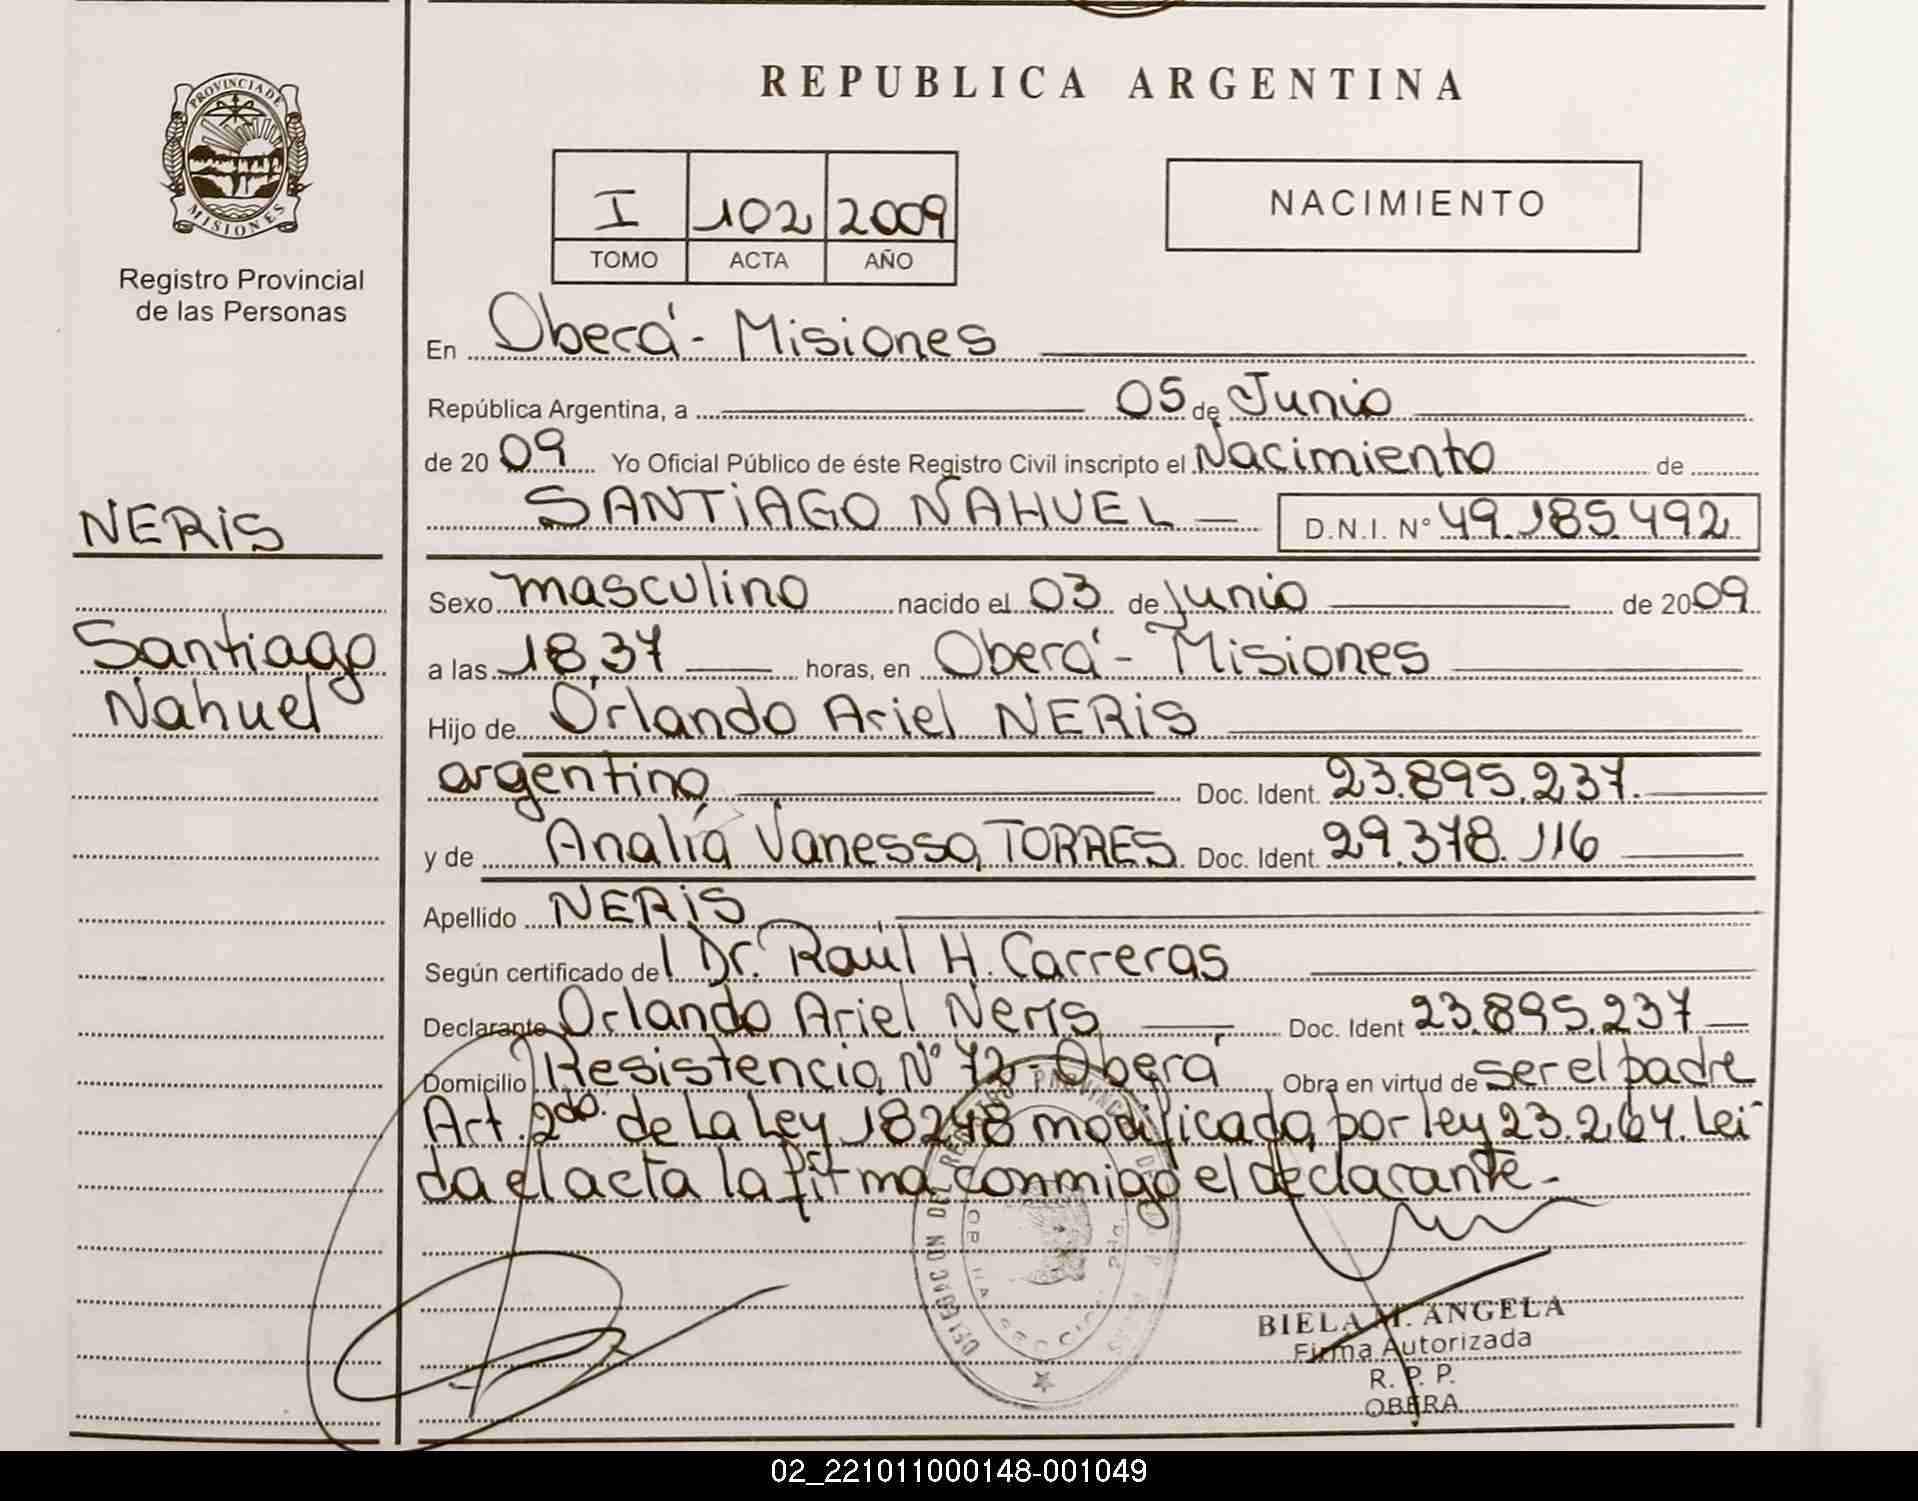 PROVINCIA DE
MISIONES
Registro Provincial
de las Personas
NERiS
Santiago
Nahuel
REPUBLICA ARGENTINA
I 102 2009
TOMO ACTA AÑO
NACIMIENTO
En Oberá - Misiones
República Argentina, a 05 de Junio
de 20 09 Yo Oficial Público de éste Registro Civil inscripto el Nacimiento de
SANTiAGO NAHUEL D.N.I. N° 49.185.492
Sexo masculino nacido el 03 de junio de 20 09
a las 18,37 horas, en Oberá - Misiones
Hijo de Orlando Ariel NERiS
argentino Doc. Ident. 23.895.237.
y de Analía Vanessa TORRES Doc. Ident. 29.378.116
Apellido NERiS
Según certificado del Dr. Raúl H. Carreras
Declarante Orlando Ariel Neris Doc. Ident 23.895.237
Domicilio Resistencia N° 72 - Oberá Obra en virtud de ser el padre
Art. 2do. de La Ley 18248 modificada por ley 23.264. Lei-
da el acta la firma conmigo el declarante.-
DELEGACION DEL REGISTRO PROVINCIAL DE
BIELA M. ANGELA
Firma Autorizada
R. P. P.
OBERA
02_221011000148-001049